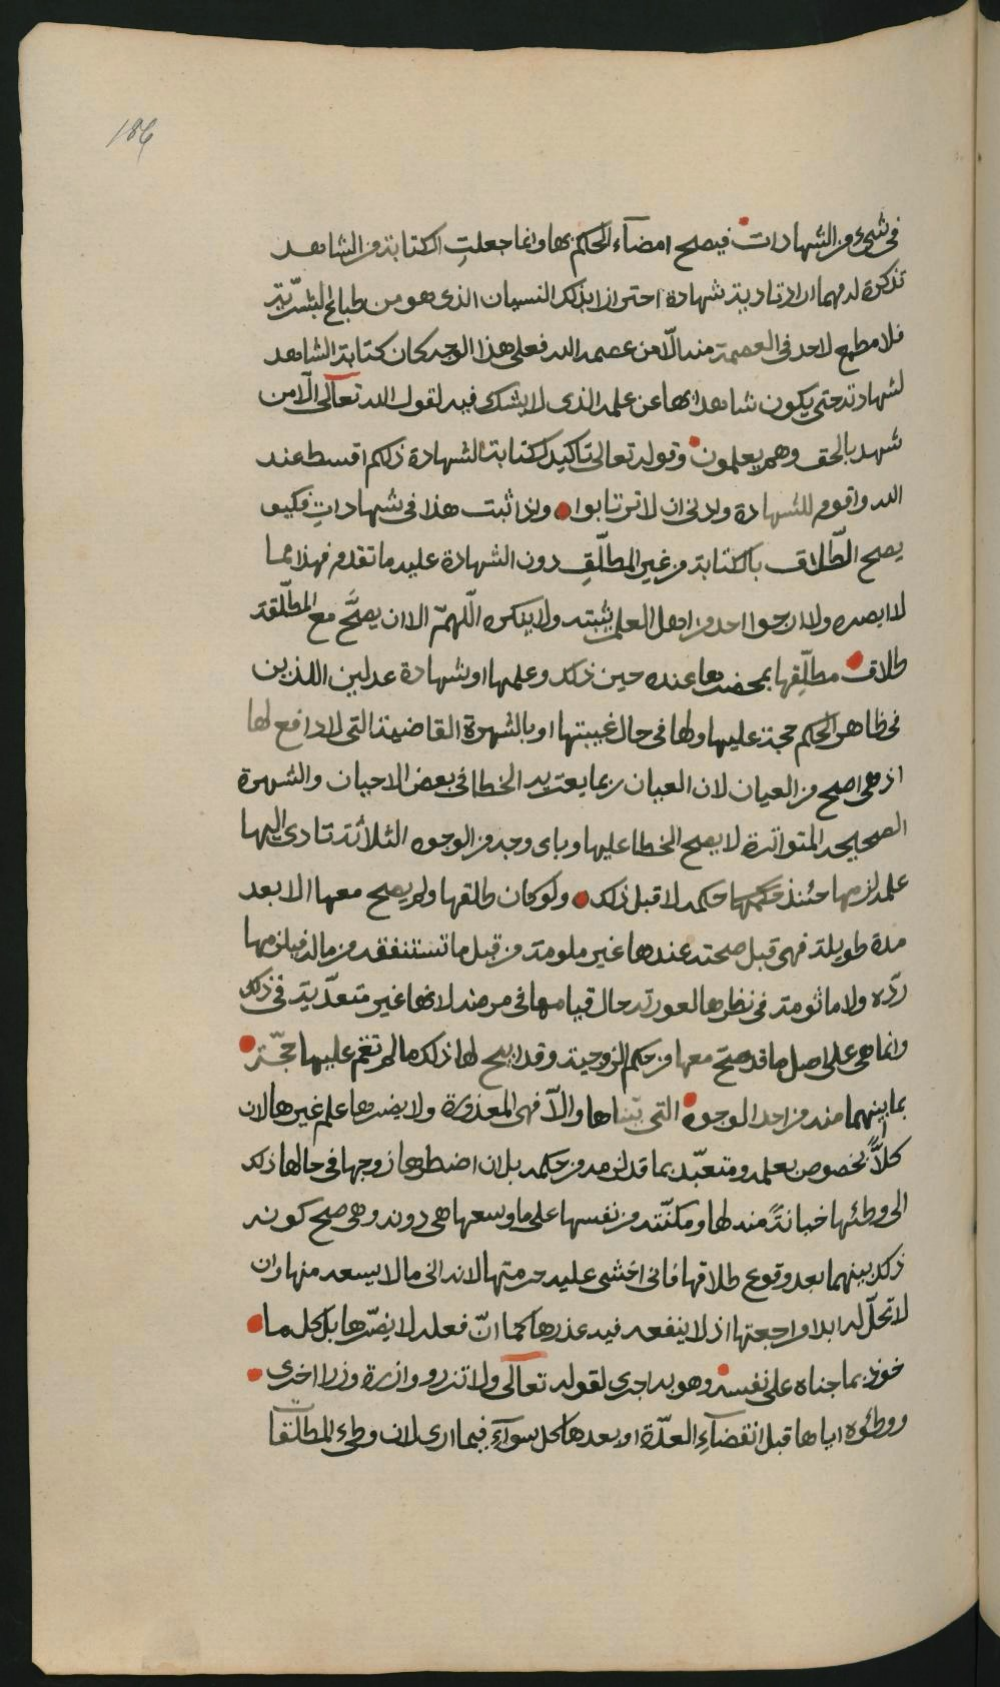 186
في شيء من الشهادات فيصلح امضآء الحاكم بها وانما جعلتِ الكتابة من الشاهد
تذكرة له مهما اراد تادية شهادة احترازا بذلك النسيان الذي هو من طبائع البشرّية
فلا مطمع لاحد في العصمة منه الّا من عصمه الله فعلى هذا الوجه كان كتابة الشاهد
لشهادته حتى يكون شاهدا بها عن علمه الذي لا يشك فيه لقول الله تعالى الّا من
شهد بالحق وهم يعلمون وقوله تعالى تاكيدا لكتابة الشهادة ذلكم اقسط عند
الله واقوم للشهادة وادنى ان لا ترتابوا واذا ثبت هذا في شهاداتٍ فكيف
يصح الطّلاق بالكتابة من غير المطلّقِ دون الشهادة عليه ما تقدم فهذا مما
لا ابصره ولا ارجوا احد من اهل العلم يثبته ولا ينكره اللّهمّ الا ان يصحَّ مع المطلّقة
طلاق مطلِّقها بمحضرها عنده حين ذلك وعلمها او شهادة عدلين اللذين
في ظاهر الحكم حجة عليها ولها في حال غيبتها او بالشهرة القاضية التي لا دافع لها
اذ هي اصح من العيان لان العيان ربما يعتريه الخطا في بعض الاحيان والشهرة
الصحيحه المتواترة لا يصح الخطا عليها وباى وجه من الوجوه الثلاثة تادى اليها
علمه لزمها حئنذ حكمها حكمه لا قبل ذلك ولو كان طلقها ولم يصح معها الا بعد
مدة طويلة فهي قبل صحته عندها غير ملومة من قبل ما تستنفقه من ماله فيلزمها
ردّه ولا ماثومة في نظرها لعورته حال قيامها في مرضه لانها غير متعدّية في ذلك
وانما هي على اصل ما قد صحّ معها من حكم الزوجية وقد ابيح لها ذلك ما لم تقم عليها حجّة
بما بينهما منه من احد الوجوه التي بيّناها والّا فهي المعذورة ولا يضرها علم غيرها لان
كلاًّ مخصوص بعلمه ومتعبّد بما قد لزمه من حكمه بل ان اضطرها زوجها في حالها ذلك
الى وطئها خيانةً منه لها ومكنّته من نفسها على ما وسعها هي دونه وهي صح كونه
ذلك بينهما بعد وقوع طلاقها فاني اخشى عليه حرمتها لانه اتى ما لا يسعه منها وان
لا تحلّ له ابدا وراجعتها اذ لا ينفعه فيه عذرها كما انّ فعله لا يضّرها بل كل ما
خوذ بما جناه على نفسه وهو به احرى لقوله تعالى ولا تزر وازرة وزر اخرى
ووطئوه اياها قبل انقضآءِ العدّة او بعدها كل سوآءٍ فيما ارى لان وطئ المطلّقا